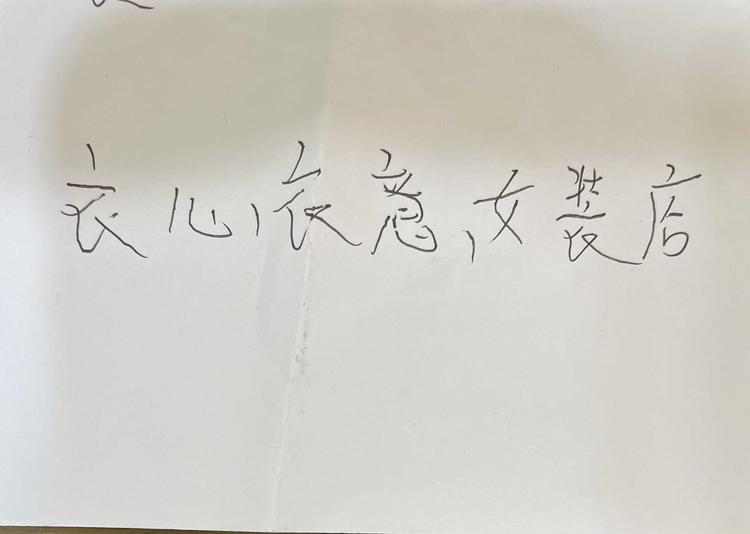 衣心,衣意,女装店